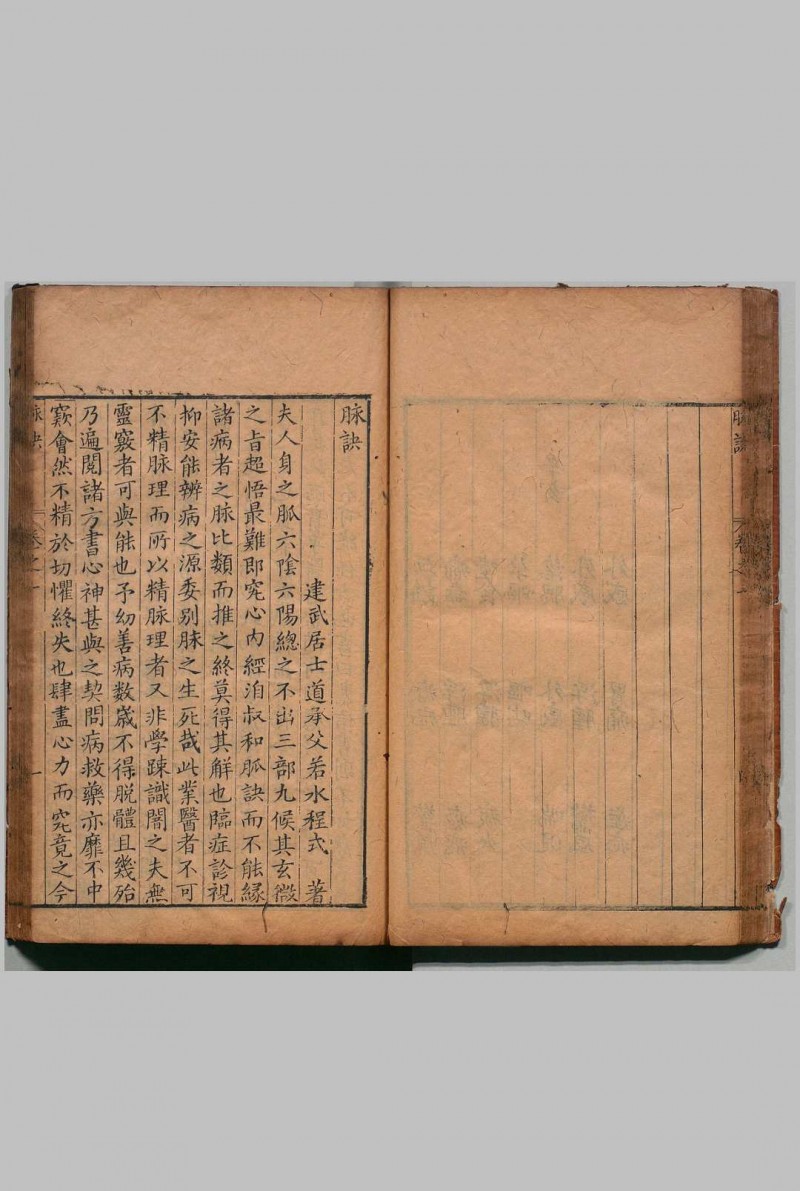 脉訣
建武居士道承父若水程式　著
夫人身之脈六陰六陽總之不出三部九候其玄微
之旨超悟最難即究心內經洎叔和脈訣而不能緣
諸病者之脉比類而推之終莫得其解也臨症診視
抑安能辨病之源委別脉之生死哉此業醫者不可
不精脉理而所以精脉理者又非學踈識闇之夫無
靈竅者可與能也予幼善病数歲不得脫體且幾殆
乃遍閱諸方書心神甚與之契問病救藥亦靡不中
窾會然不精於切懼終失也肆盡心力而究竟之今
脉訣
卷之一
一